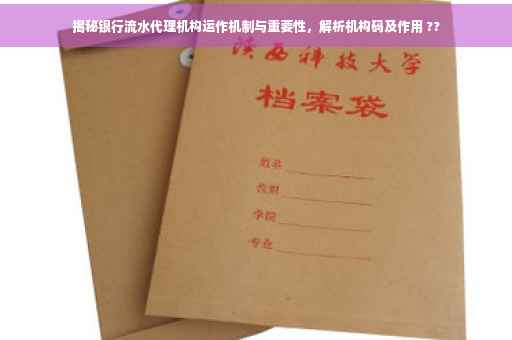 揭秘银行流水代理机构运作机制与重要性，解析机构码及作用 ??
陕西科技大学
档案袋
姓名
学院
专业